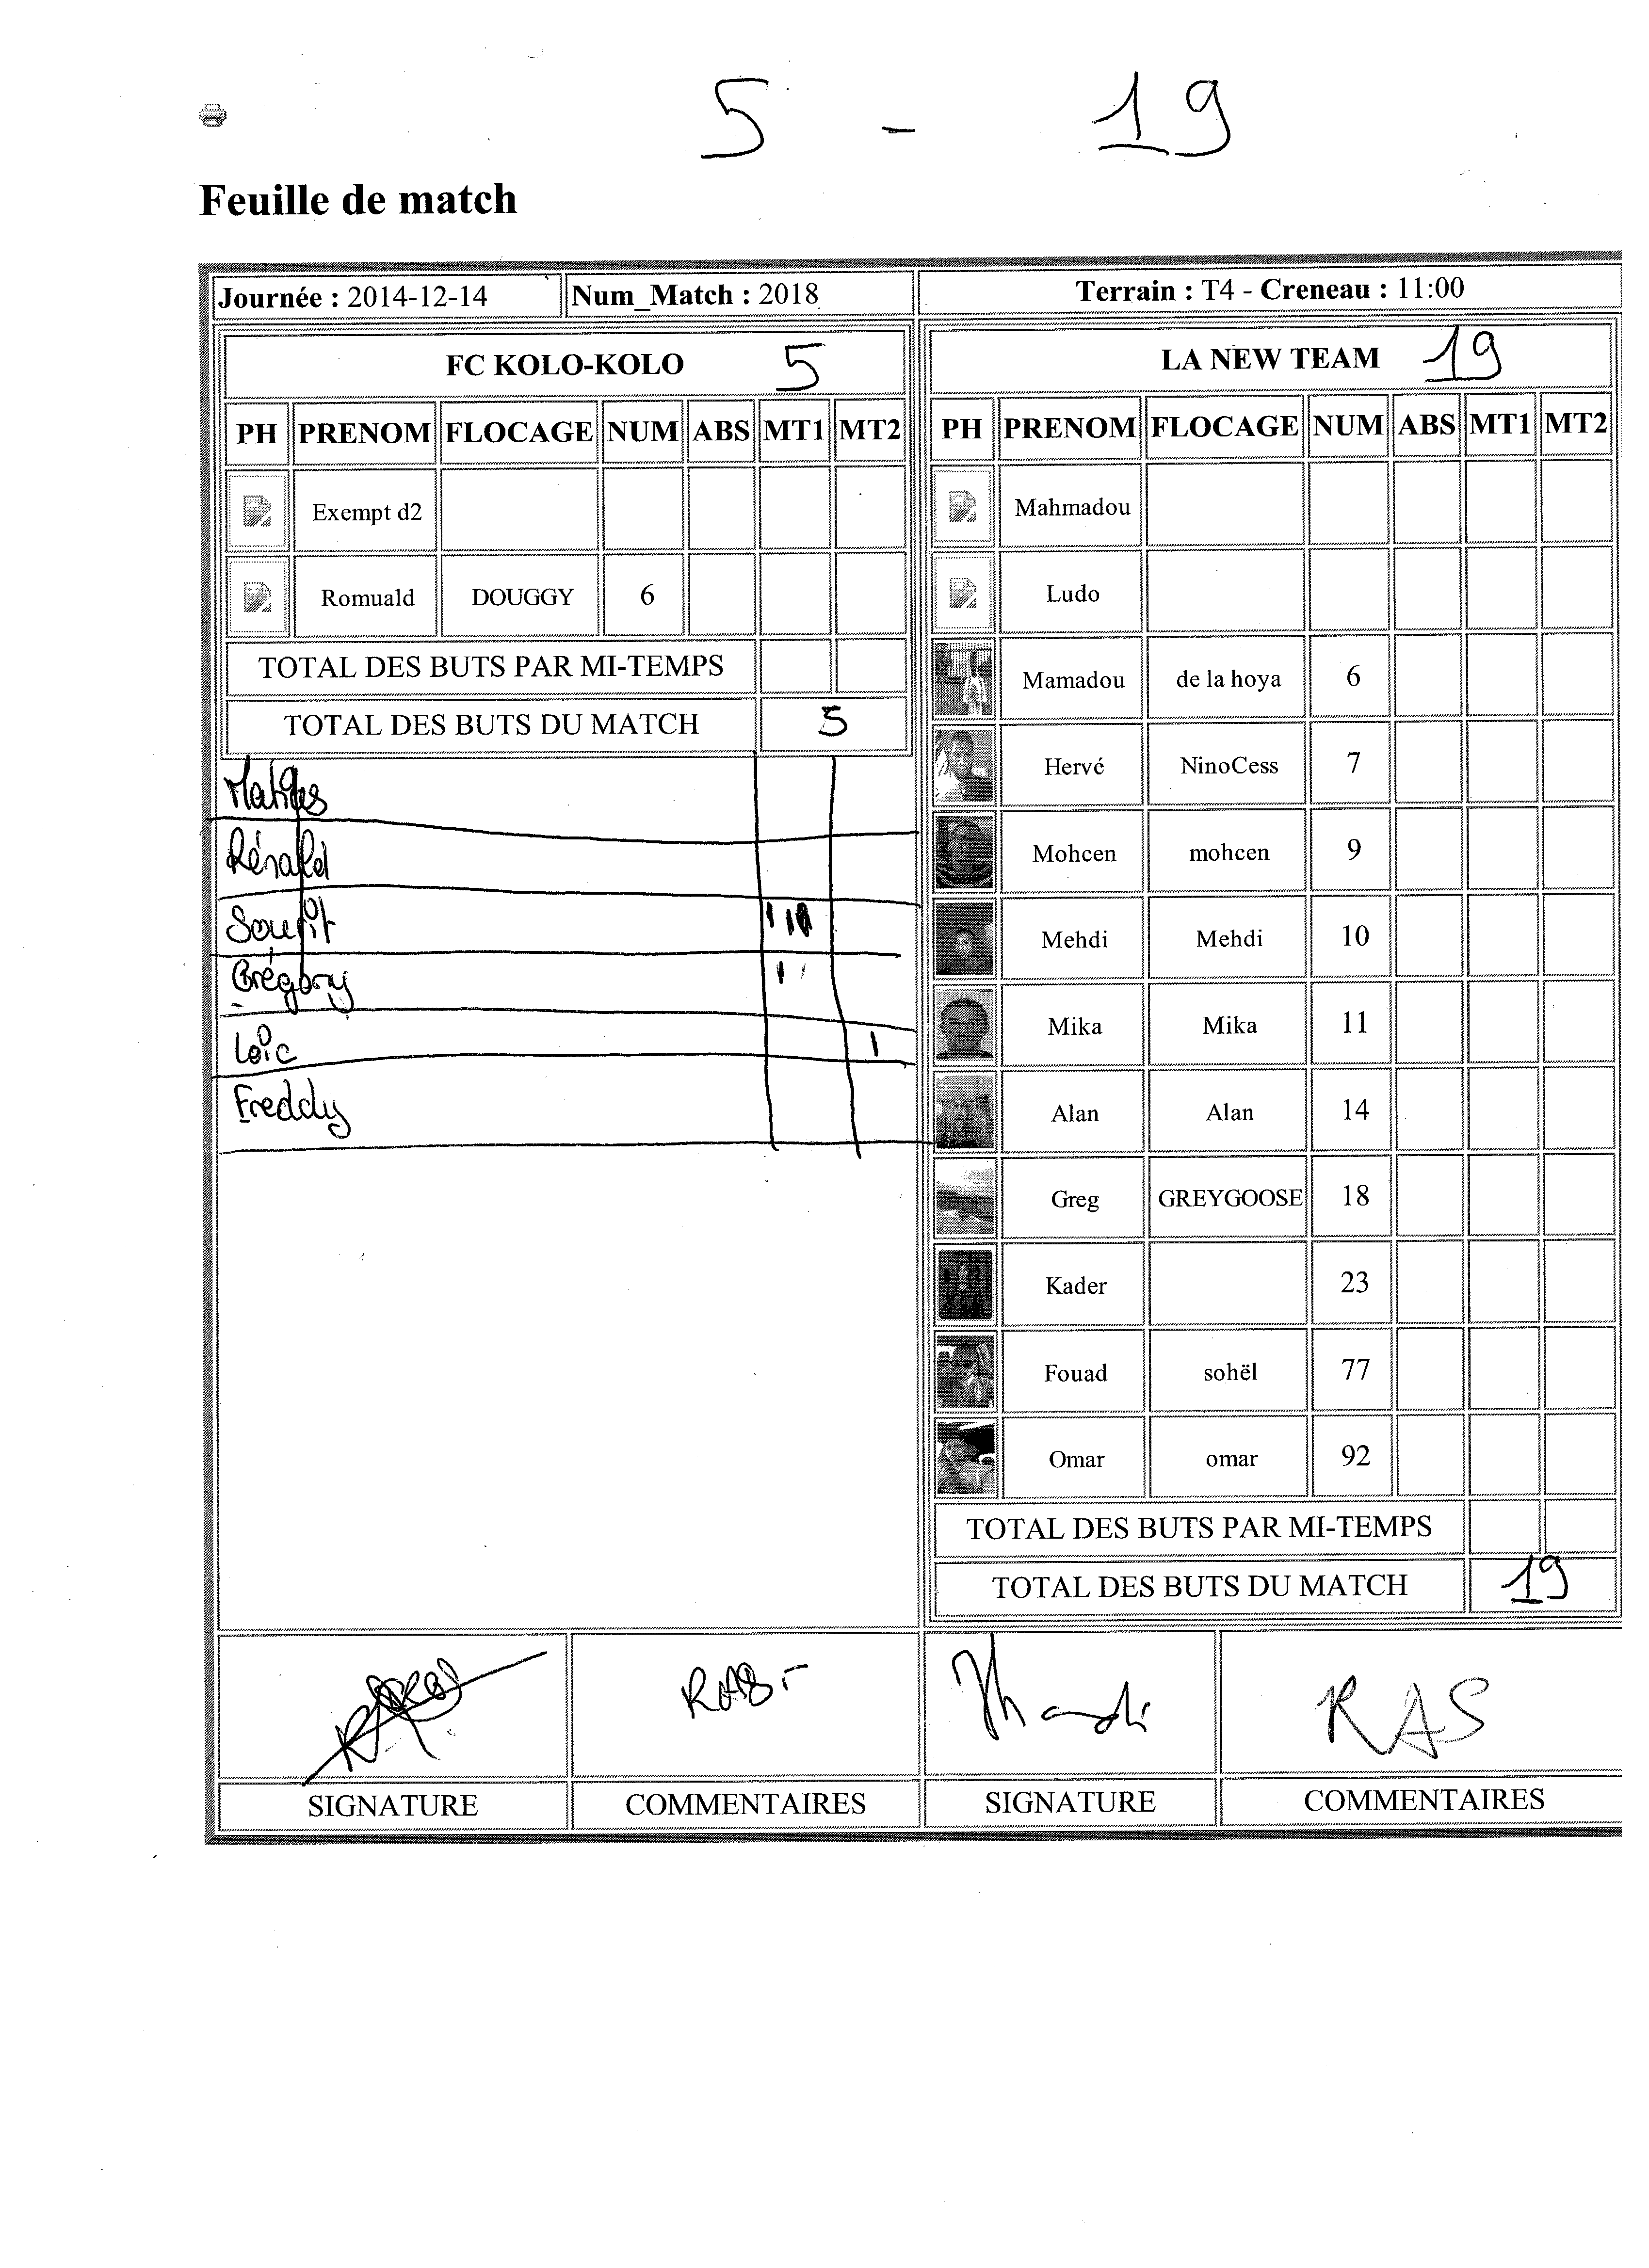 5 - 19
Feuille de match
Journée : 2014-12-14 Num_Match : 2018 Terrain : T4 - Creneau : 11:00
FC KOLO-KOLO 5
PH PRENOM FLOCAGE NUM ABS MT1 MT2
Exempt d2
Romuald DOUGGY 6
TOTAL DES BUTS PAR MI-TEMPS
TOTAL DES BUTS DU MATCH 5
Soufit
Grégory
Loïc
Freddy
LA NEW TEAM 19
PH PRENOM FLOCAGE NUM ABS MT1 MT2
Mahmadou
Ludo
Mamadou de la hoya 6
Hervé NinoCess 7
Mohcen mohcen 9
Mehdi Mehdi 10
Mika Mika 11
Alan Alan 14
Greg GREYGOOSE 18
Kader 23
Fouad sohël 77
Omar omar 92
TOTAL DES BUTS PAR MI-TEMPS
TOTAL DES BUTS DU MATCH 19
RAS
RAS
SIGNATURE COMMENTAIRES SIGNATURE COMMENTAIRES